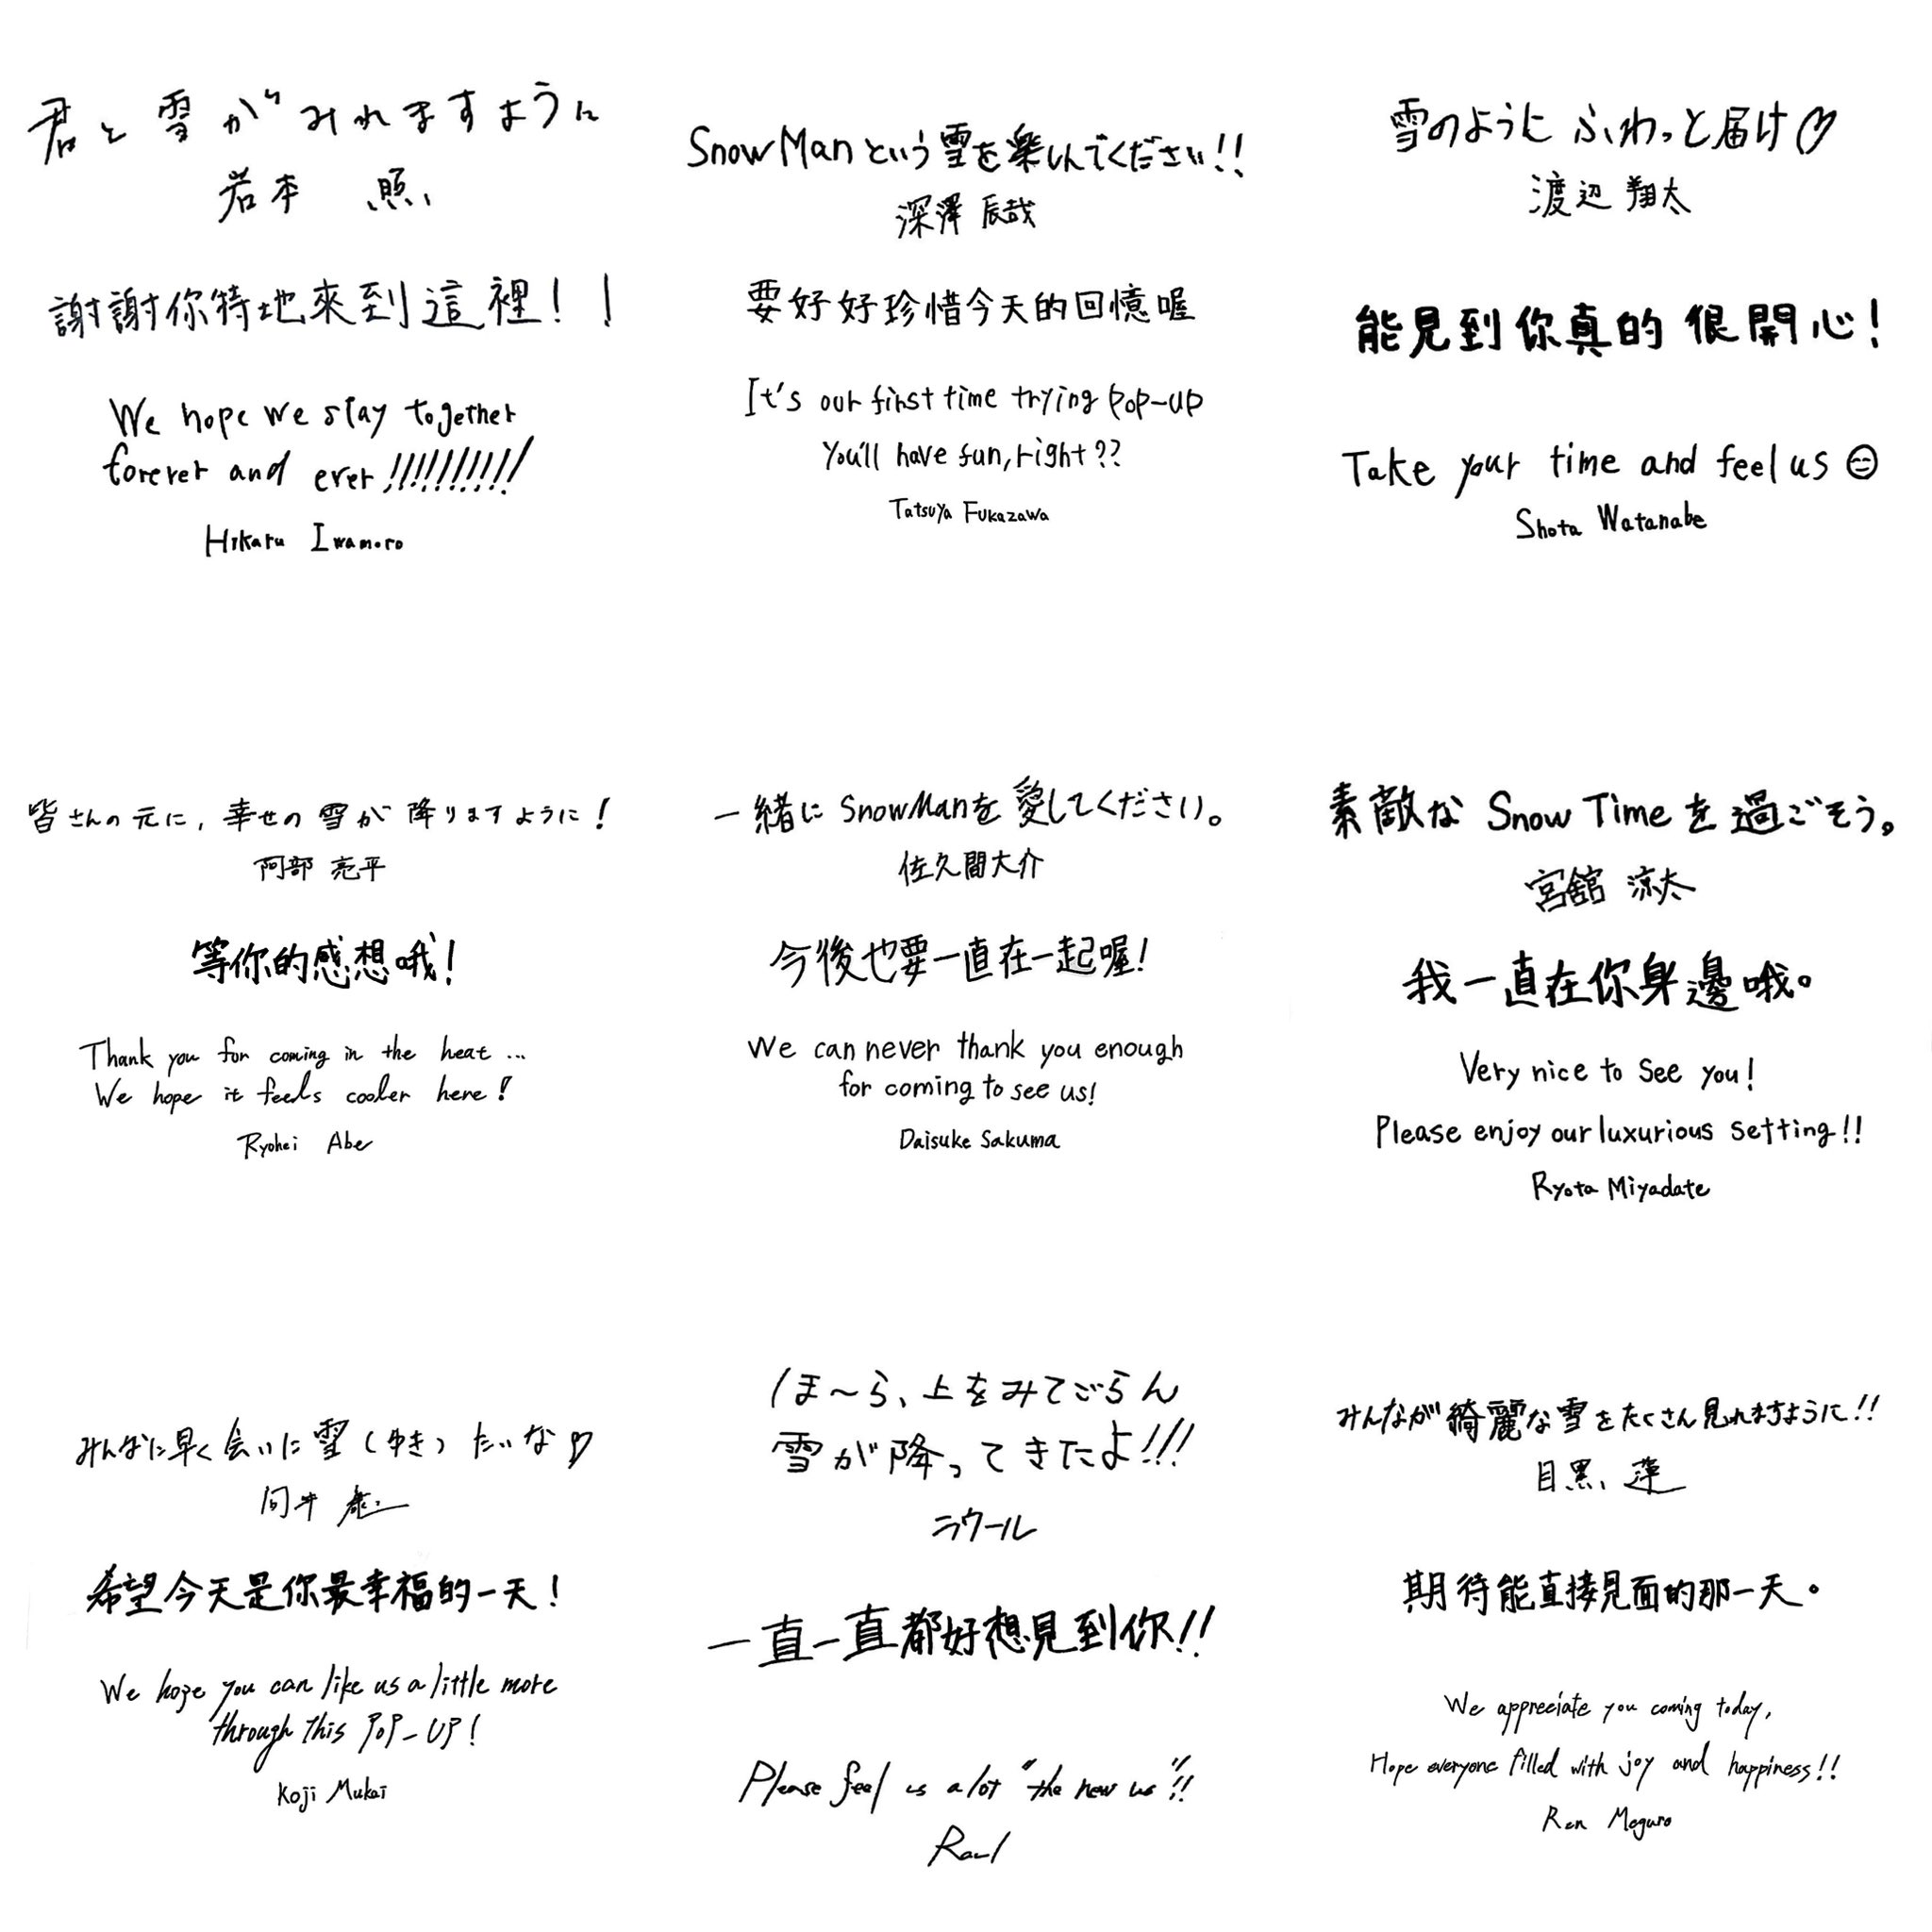 君と雪がみれますように
岩本 照
謝謝你特地來到這裡！！
We hope we stay together
forever and ever!!!!!!!!!!
Hikaru Iwamoto
SnowManという雪を楽しんでください!!
深澤 辰哉
要好好珍惜今天的回憶喔
It's our first time trying pop-up
You'll have fun, right??
Tatsuya Fukazawa
雪のように ふわっと届け♡
渡辺 翔太
能見到你真的很開心！
Take your time and feel us ☺
Shota Watanabe
皆さんの元に，幸せの雪が降りますように！
阿部 亮平
等你的感想哦！
Thank you for coming in the heat...
We hope it feels cooler here!
Ryohei Abe
一緒に SnowManを愛してください。
佐久間大介
今後也要一直在一起喔！
We can never thank you enough
for coming to see us!
Daisuke Sakuma
素敵な Snow Time を過ごそう。
宮舘 涼太
我一直在你身邊哦。
Very nice to see you!
Please enjoy our luxurious setting!!
Ryota Miyadate
みんなに早く会いに雪（ゆき）たいな♡
向井 康二
希望今天是你最幸福的一天！
We hope you can like us a little more
through this POP-UP!
Koji Mukai
ほ〜ら、上をみてごらん
雪が降ってきたよ!!!
ラウール
一直一直都好想見到你!!
Please feel us a lot "the new us"!!
Raul
みんなが綺麗な雪をたくさん見れますように!!
目黒 蓮
期待能直接見面的那一天。
We appreciate you coming today,
Hope everyone filled with joy and happiness!!
Ren Meguro